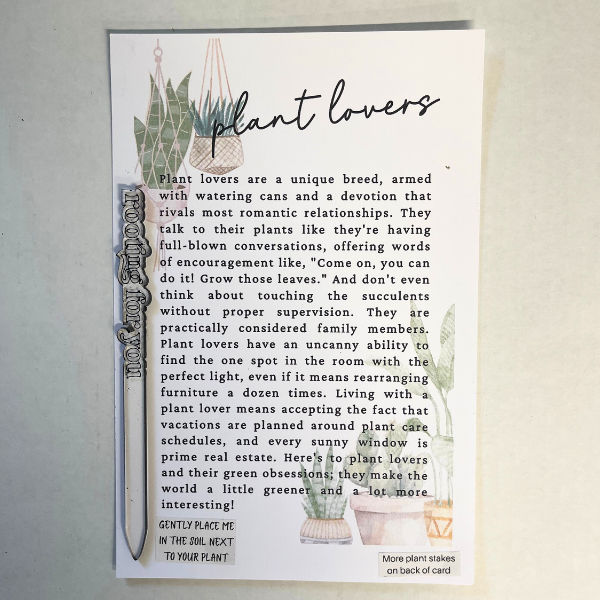 plant lovers
Plant lovers are a unique breed, armed
with watering cans and a devotion that
rivals most romantic relationships. They
talk to their plants like they're having
full-blown conversations, offering words
of encouragement like, "Come on, you can
do it! Grow those leaves." And don't even
think about touching the succulents
without proper supervision. They are
practically considered family members.
Plant lovers have an uncanny ability to
find the one spot in the room with the
perfect light, even if it means rearranging
furniture a dozen times. Living with a
plant lover means accepting the fact that
vacations are planned around plant care
schedules, and every sunny window is
prime real estate. Here's to plant lovers
and their green obsessions; they make the
world a little greener and a lot more
interesting!
rooting for you
GENTLY PLACE ME
IN THE SOIL NEXT
TO YOUR PLANT
More plant stakes
on back of card